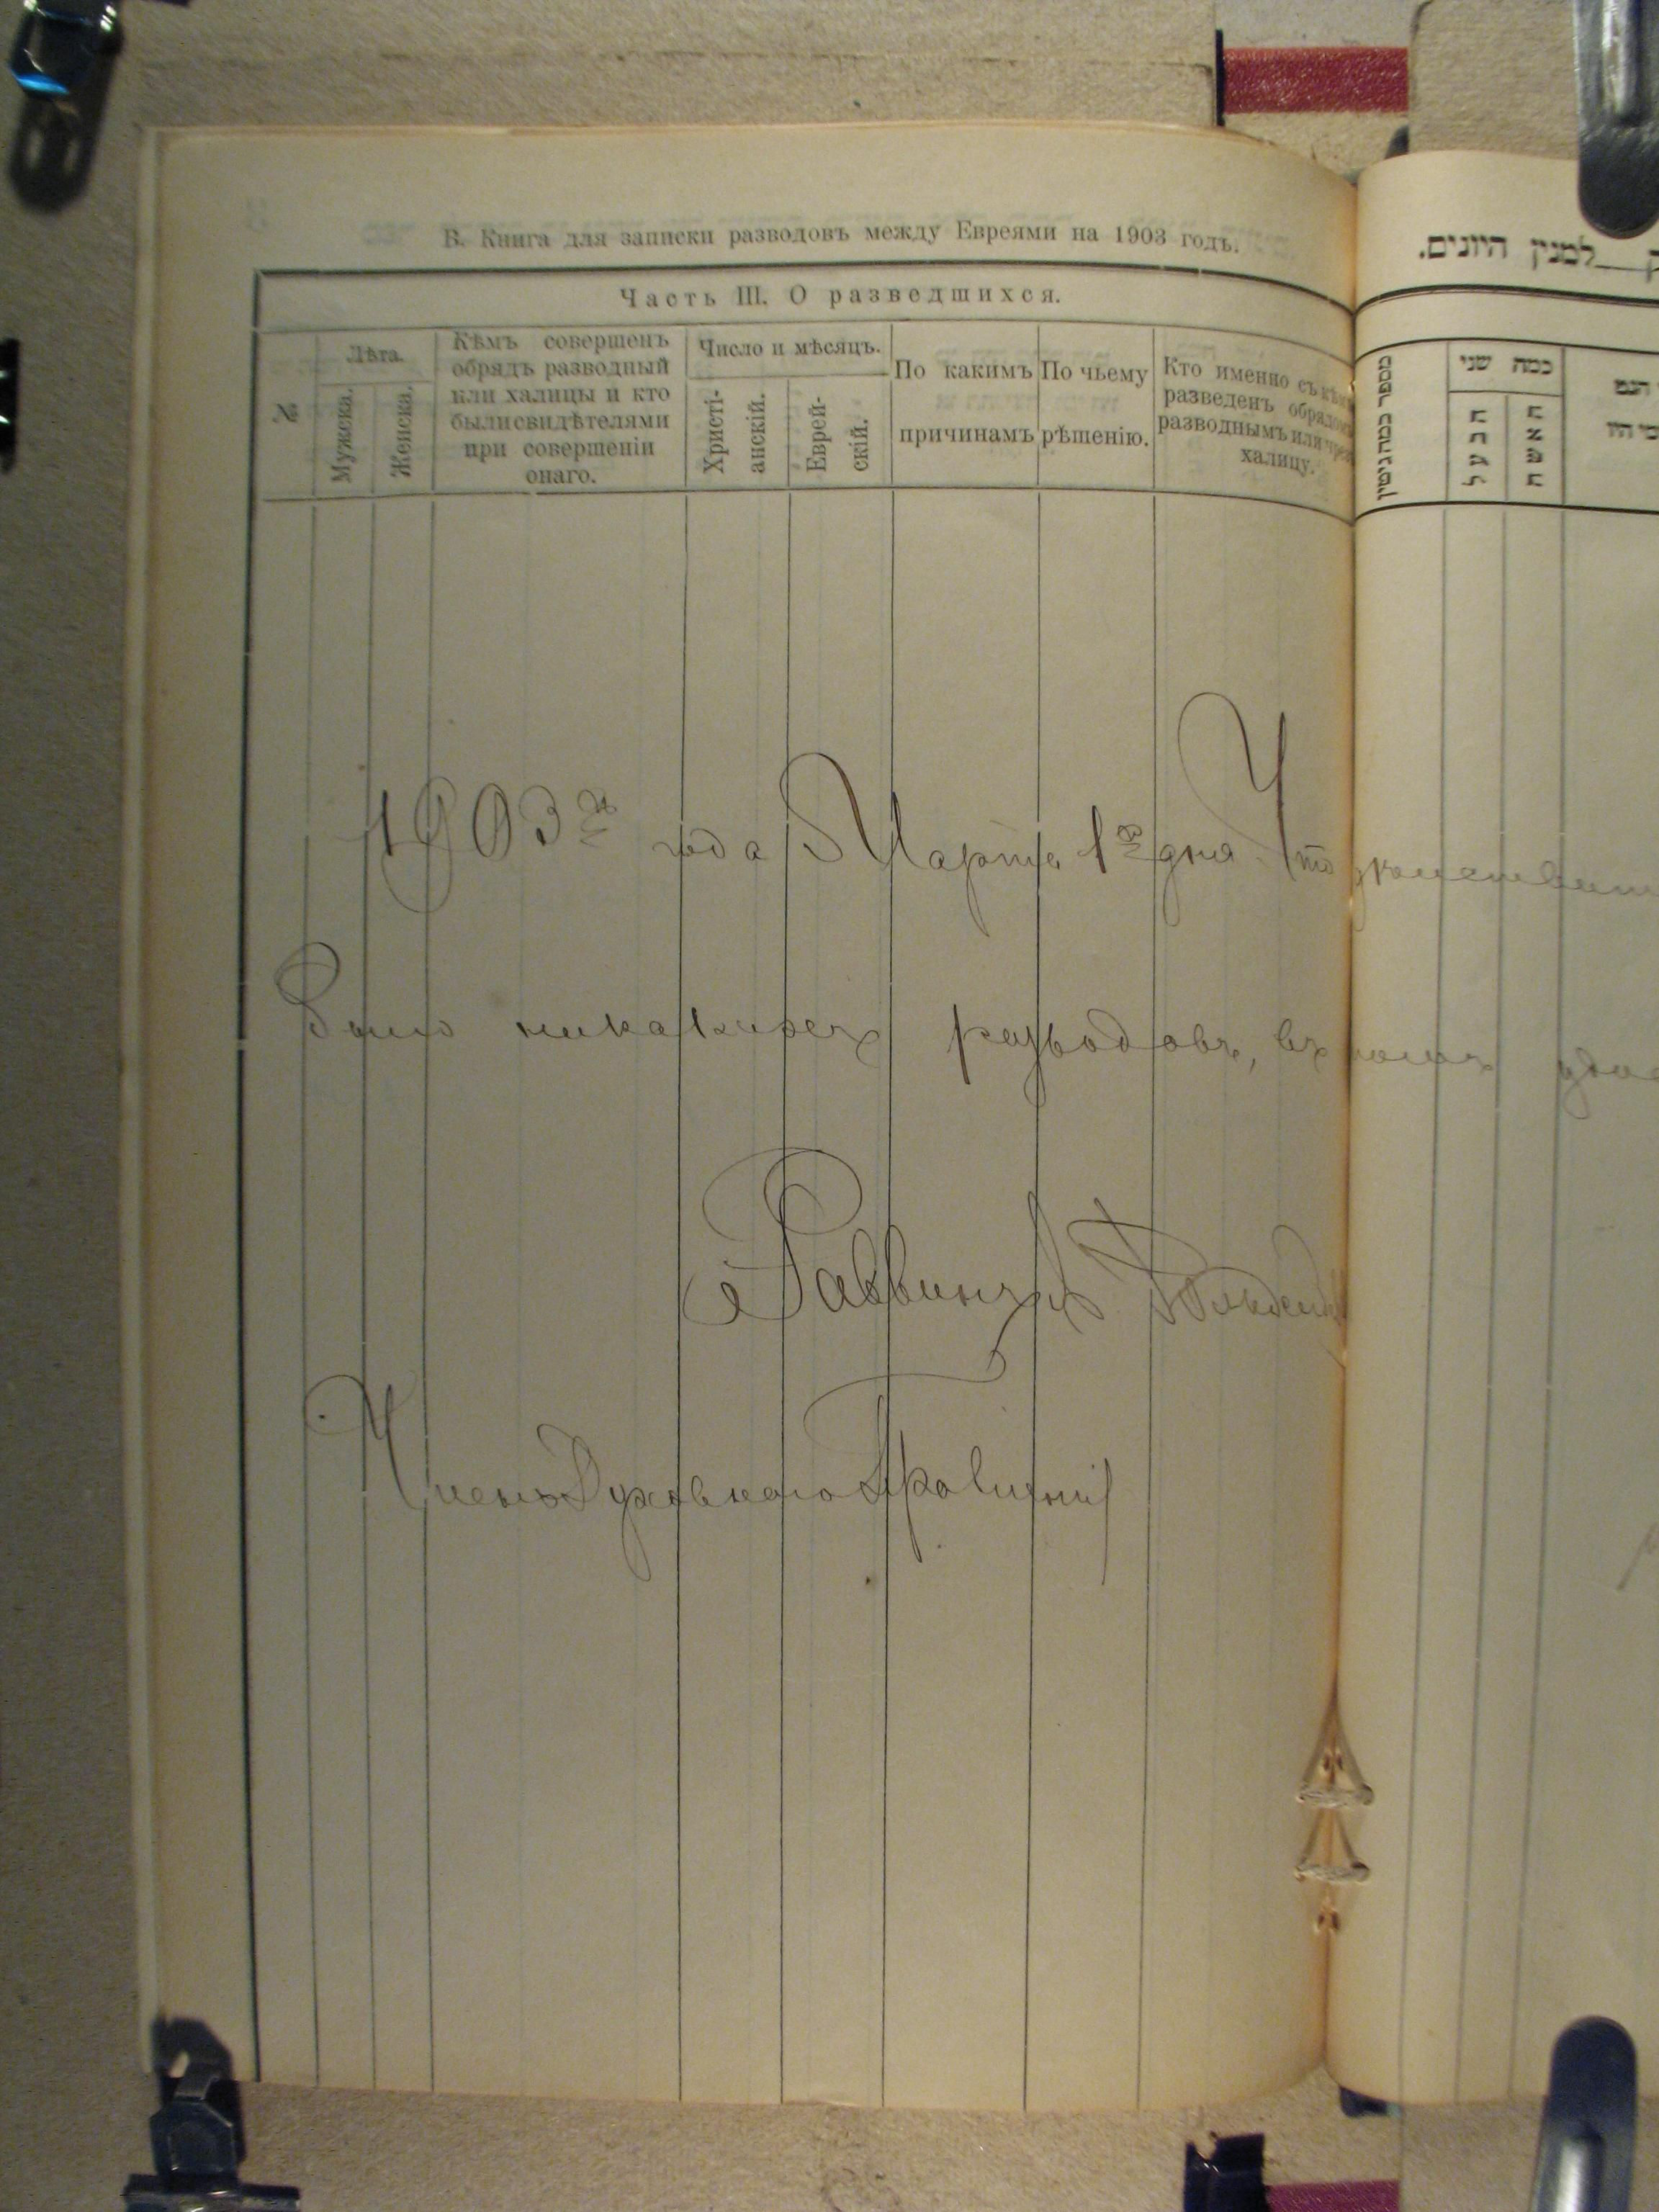 В. Книга для записки разводовъ между Евреями на 1903 годъ.
Часть III. О разведшихся.
№
Лѣта.
Мужска.
Женска.
Кѣмъ совершенъ
обрядъ разводный
или халицы и кто
были свидѣтелями
при совершеніи
онаго.
Число и мѣсяцъ.
Христі-
анскій.
Еврей-
скій.
По какимъ
причинамъ
По чьему
рѣшенію.
Кто именно съ кѣмъ
разведенъ обрядомъ
разводнымъ или чрез
халицу.
1903го года Марта 1го дня Что
было никакихъ разводовъ, въ
Раввинъ
Членъ Духовнаго Правленія
למנין היונים.
מספר הגירושין
כמה שני
הבעל
האשה